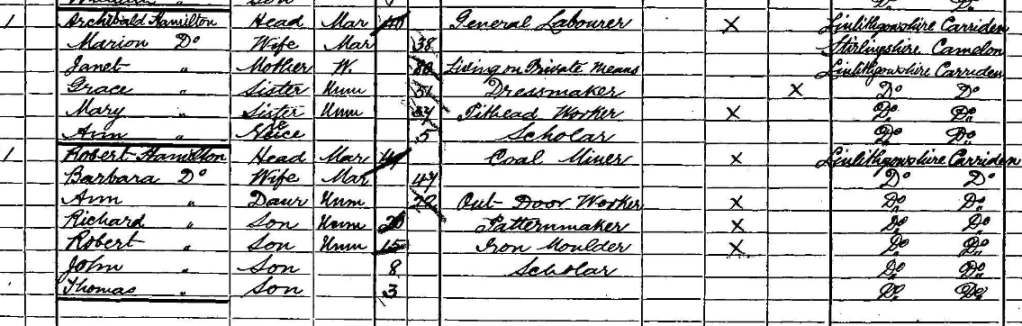 Son Do Do
1 Archibald Hamilton Head Mar 40 General Labourer X Linlithgowshire Carriden
Marion Do Wife Mar 38 Stirlingshire Camelon
Janet " Mother W. 80 Living on Private Means Linlithgowshire Carriden
Grace " Sister Unm 51 Dressmaker X Do Do
Mary " Sister Unm 37 Pithead Worker X Do Do
Ann " Neice 5 Scholar Do Do
1 Robert Hamilton Head Mar Coal Miner X Linlithgowshire Carriden
Barbara Do Wife Mar 47 Do Do
Ann " Daur Unm 22 Out Door Worker X Do Do
Richard " Son Unm 20 Patternmaker X Do Do
Robert " Son Unm 15 Iron Moulder X Do Do
John " Son 8 Scholar Do Do
Thomas " Son 3 Do Do